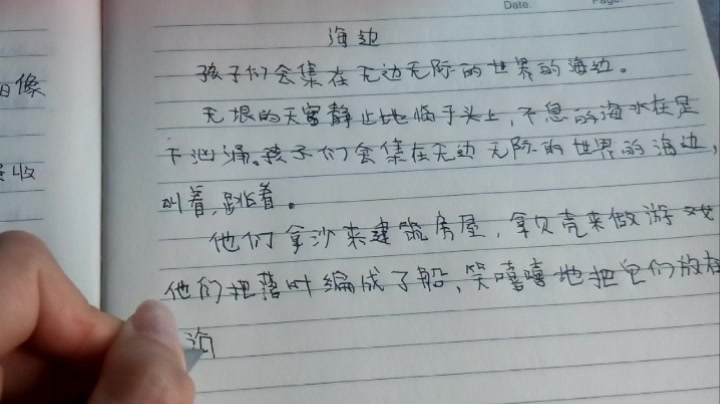 Date.
Page.
海边
孩子们会集在无边无际的世界的海边。
无垠的天穹静止地临于头上,不息的海水在足
下汹涌。孩子们会集在无边无际的世界的海边,
叫着,跳着。
他们拿沙来建筑房屋,拿贝壳来做游戏
他们把落叶编成了船,笑嘻嘻地把它们放在
海
日像
收